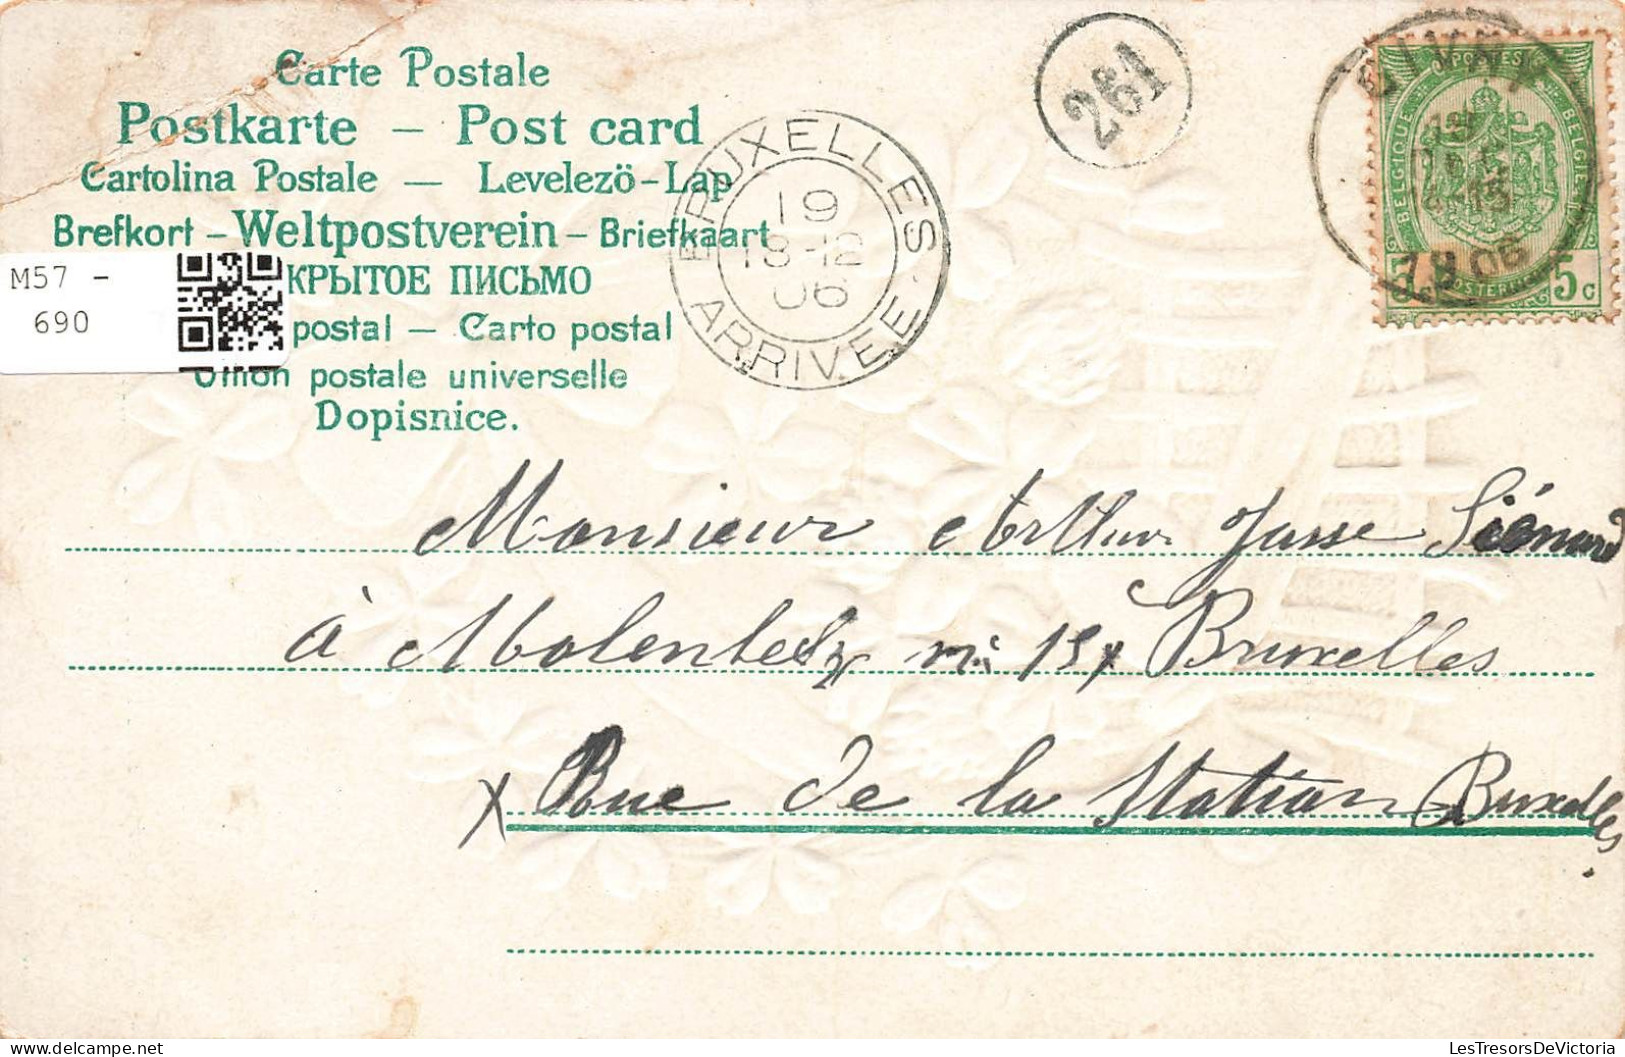 Carte Postale
Postkarte – Post card
Cartolina Postale — Levelezö-Lap
Brefkort – Weltpostverein – Briefkaart
КРЫТОЕ ПИСЬМО
postal — Carto postal
Union postale universelle
Dopisnice.
M57 -
690
BRUXELLES
19
18-12
06
ARRIVEE
261
POSTES
BELGIQUE
BELGIE
5 5c
1906
Monsieur Arthur Jasse
à Molenbeek Bruxelles
x Rue de la Station Bruxelles
LesTresorsDeVictoria